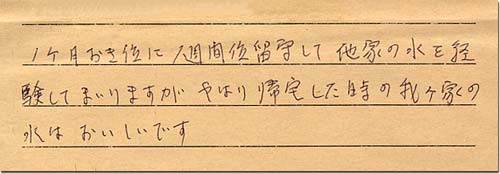 1ヶ月おき位に 1週間位留守して 他家の水を経
験してまいりますが やはり帰宅した時の我ヶ家の
水は おいしいです